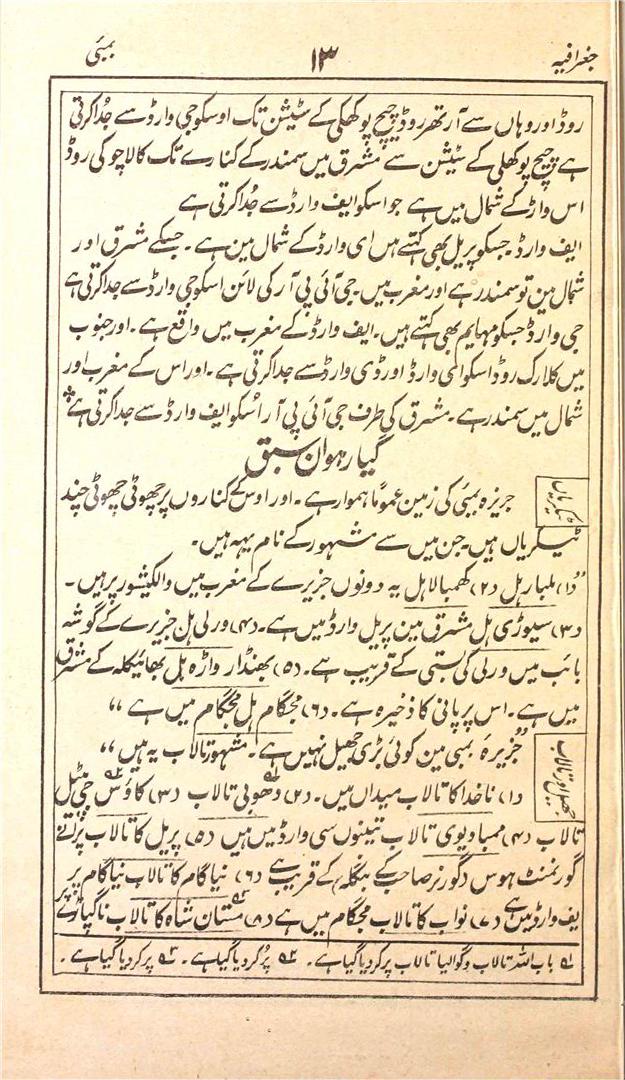 جغرافیہ
۱۳
بمبئی
روڈ اور وہاں سے آرتھر روڈ چنچ پوکھلی کے سٹیشن تک اوسکو جی وارڈ سے جُدا کرتی
ہے چنچ پوکھلی کے سٹیشن سے مشرق میں سمندر کے کنارے تک کالاچوکی روڈ
اس واڑ کے شمال میں ہے جو اسکو ایف وارڈ سے جُدا کرتی ہے
ایف وارڈ۔ جسکو پریل بھی کہتے ہیں ای وارڈ کے شمال مین ہے۔ جسکے مشرق اور
شمال مین تو سمندر ہے اور مغرب میں۔ جی آئی پی آر کی لائن اسکو جی وارڈ سے جدا کرتی ہے
جی وارڈ جسکو مہایم بھی کہتے ہیں۔ ایف وارڈ کے مغرب میں واقع ہے۔ اور جنوب
میں کلارک روڈ اسکو ای وارڈ اور ڈی وارڈ سے جدا کرتی ہے۔ اور اس کے مغرب اور
شمال میں سمندر ہے۔ مشرق کی طرف جی آئی پی آر اسُکو ایف وارڈ سے جدا کرتی ہے
گیارہوان سبق
ٹیکریاں
جزیرہ بمبئی کی زمین عموماً ہموار ہے۔ اور اوسکے کناروں پر چھوٹی چھوٹی چند
ٹیکریاں ہیں۔ جن میں سے مشہور کے نام یہہ ہیں۔
"(۱) ملبار ہل (۲) کھمبالا ہل یہ دونوں جزیرے کے مغرب میں والکیشور پر ہیں۔
(۳) سیوڑی ہل مشرق مین پریل وارڈ میں ہے۔ (۴) ورلی ہل جزیرے کے گوشہ
بائب میں ورلی کی بستی کے قریب ہے۔ (۵) بھنڈار واڑہ ہل بھائیکلہ کے مشرق
میں ہے۔ اس پر پانی کا ذخیرہ ہے۔ (۶) مجگام ہل مجگام میں ہے "
جھیل اور تالاب
"جزیرہ بمبی مین کوئی بڑی جھیل نہیں ہے۔ مشہور تالاب یہ ہیں "
(۱) ناخدا کا تالاب میداں میں۔ (۲) دھوبی تالاب ۱؎ (۳) کاؤس جی پٹیل ۲؎
تالاب (۴) ممبا دیوی تالاب تینوں سی وارڈ میں ہیں (۵) پریل کا تالاب پرانے
گورنمنٹ ہوس (گورنر صاحب کے بنگلہ) کے قریب ہے (۶) نیا گام کا تالاب نیا گام پر
یف وارڈ میں ہے (۷) نواب کا تالاب مجگام میں ہے (۸) مستان شاہ کا تالاب ۳؎ ناگپاڑے پر
۱؎ باب اللہ تالاب و گوالیا تالاب پر کر دیا گیا ہے۔ ۲؎ پُر کر دیا گیا ہے۔ ۳؎ پر کر دیا گیا ہے۔